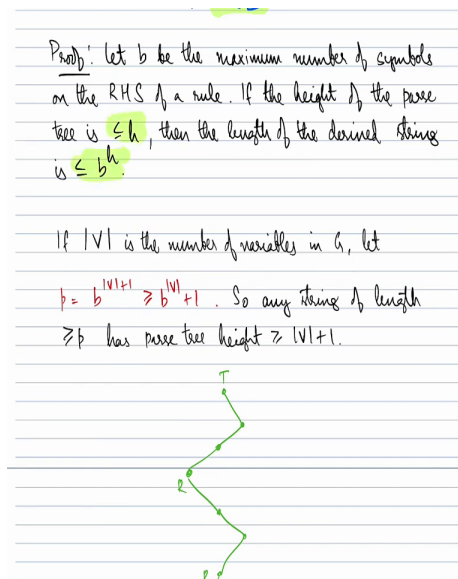 Proof: Let b be the maximum number of symbols
on the RHS of a rule. If the height of the parse
tree is ≤ h, then the length of the derived string
is ≤ b^h.
If |V| is the number of variables in G, let
p = b^{|V|+1} ≥ b^{|V|}+1. So any string of length
≥ p has parse tree height ≥ |V|+1.
T
R